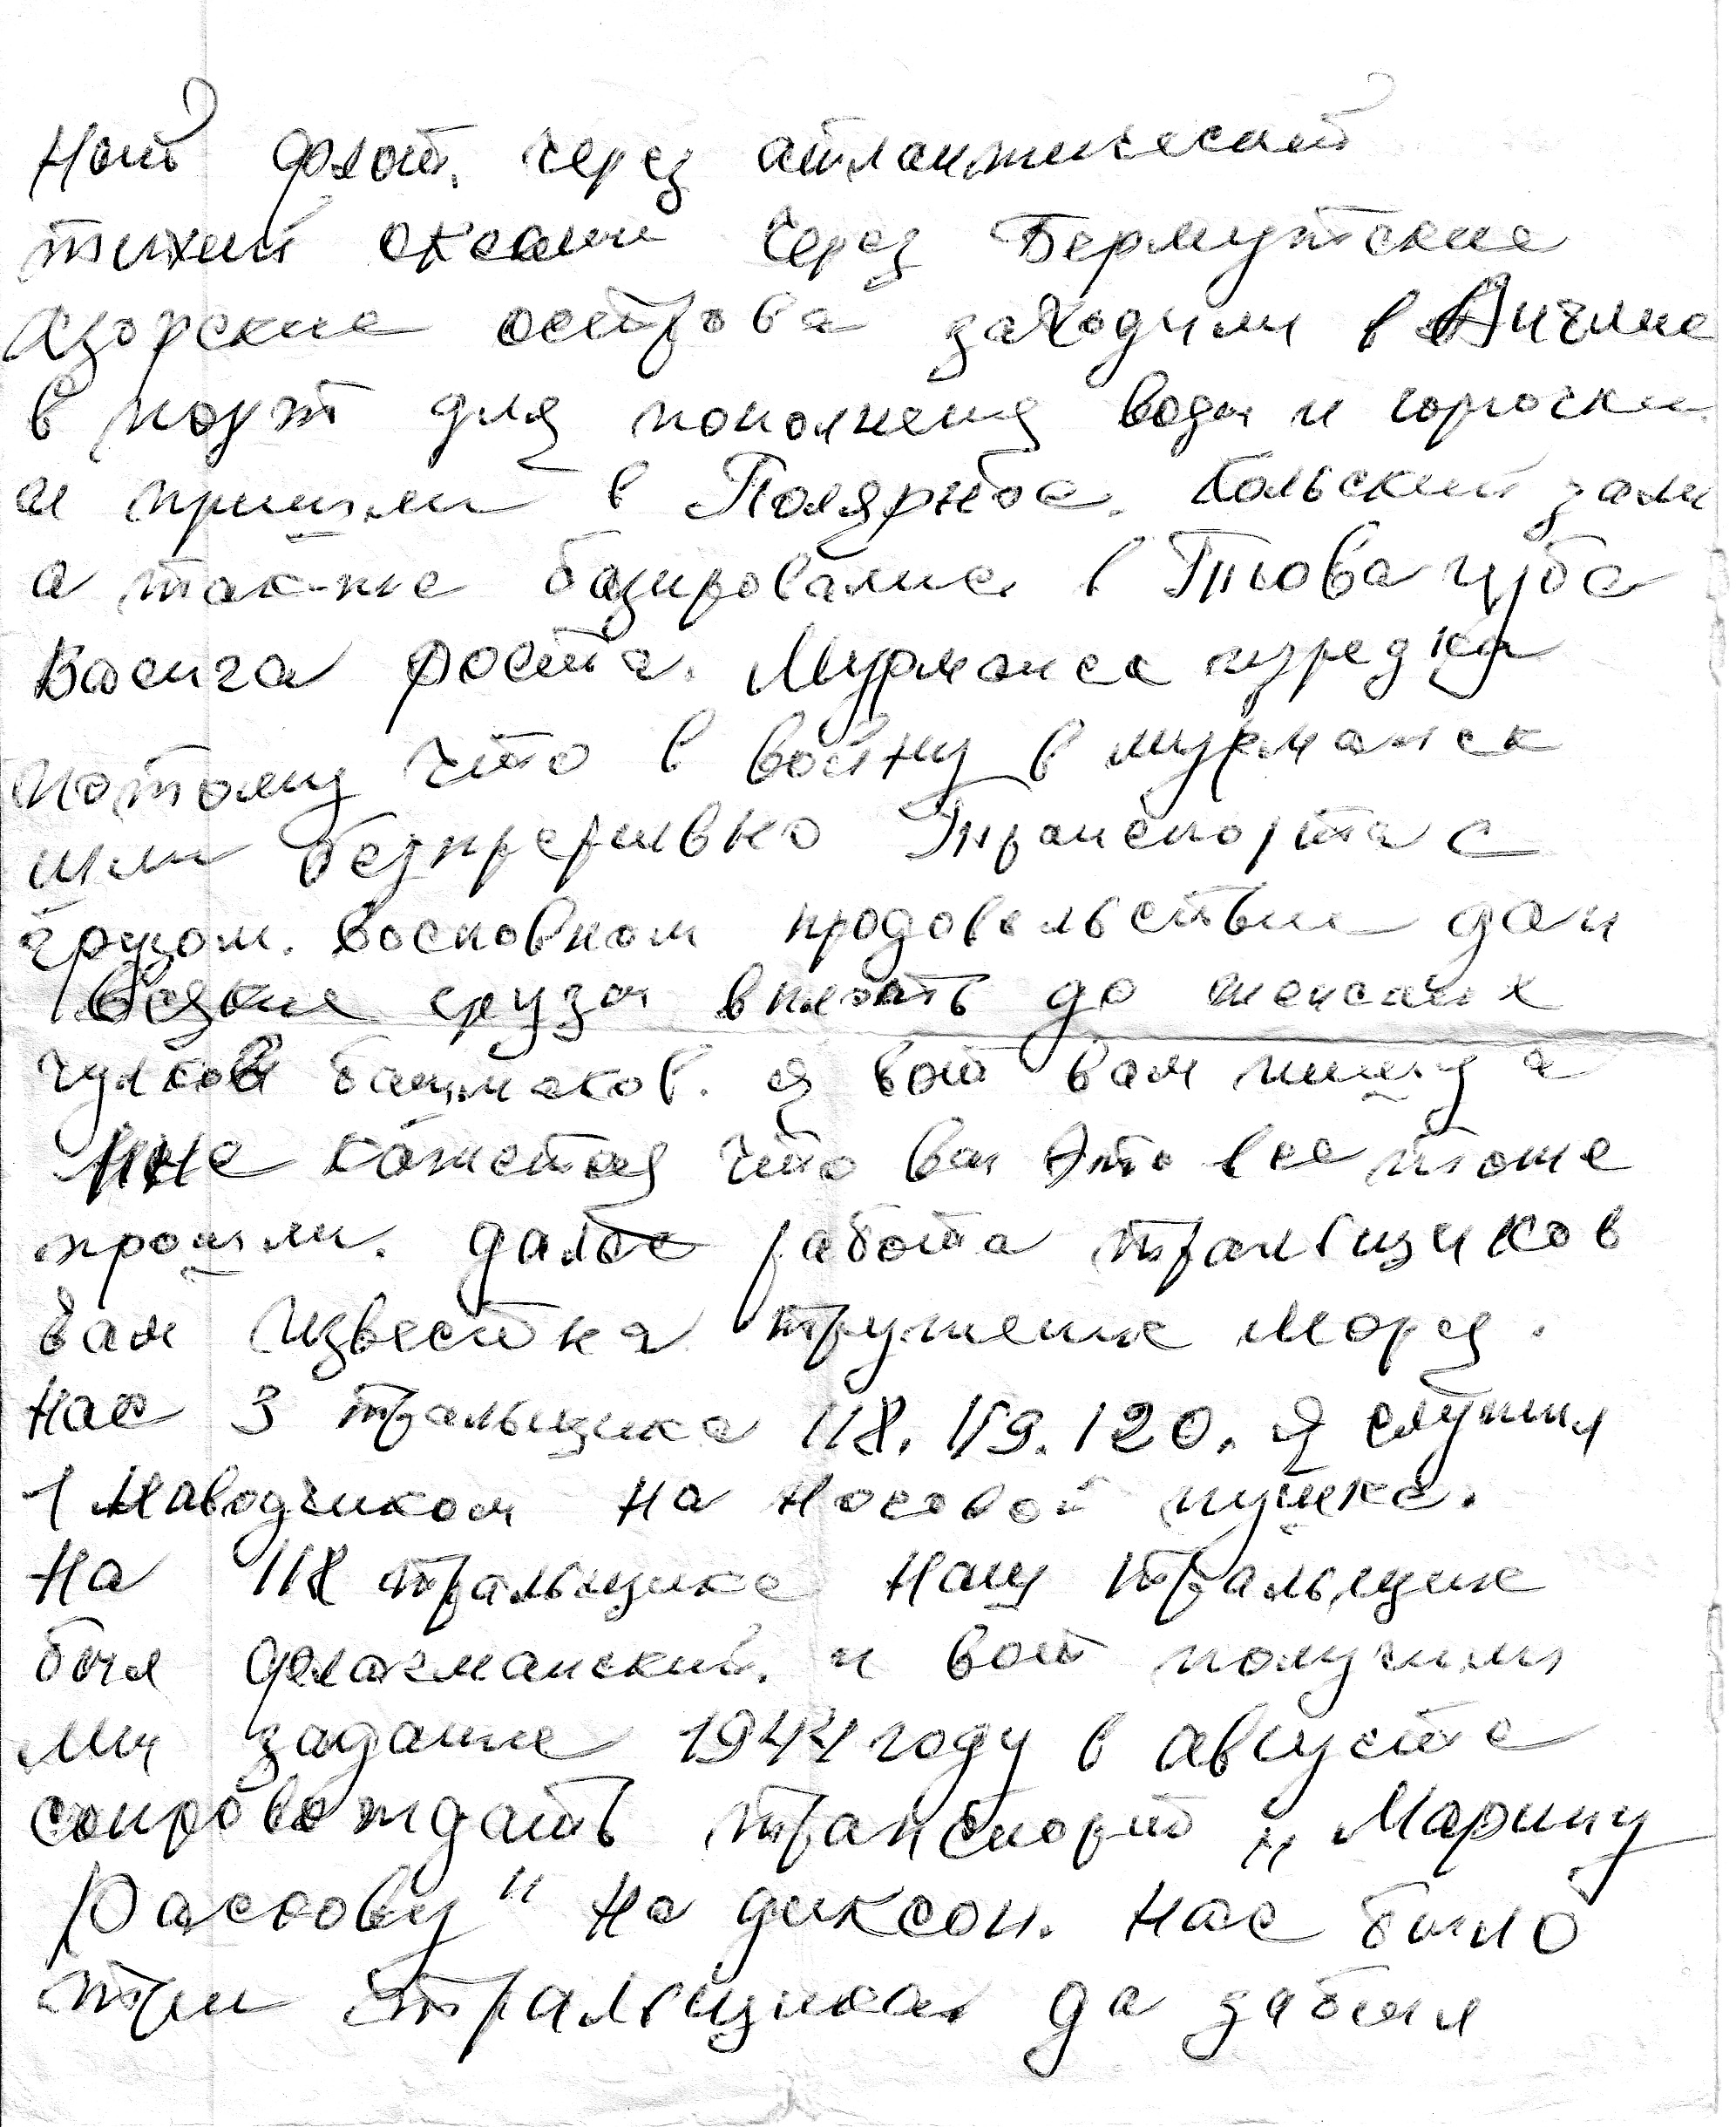 ный флот. через атлантический
тихий океан через Бермутские
Азорские острова заходили в Англие
в порт для пополнения воды и горючки
и пришли в Полярное. Кольский зали
а так-же базировались в Тюва губа
Ваенга роста. Мурманск изредка
потому что в войну в мурманск
шли безпрерывно Транспорта с
грузом. Восновном продовольствие да и
всякие грузы вплоть до женских
чулков башмаков. я вот вам пишу а
мне кажется что вы это все тоже
прошли. далее работа тральщиков
вам известна труженик моря.
нас 3 тральщика 118. 119. 120. Я служил
1 наводчиком на носовой пушке.
На 118 тральщике наш тральщик
был флагманский. и вот получили
мы задание 1944 году в августе
сопровождать транспорт „Марину
Раскову" на диксон. нас было
три тральщика да забыл